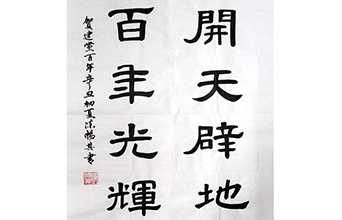 開天闢地
百年光輝
賀建黨百年辛丑初夏